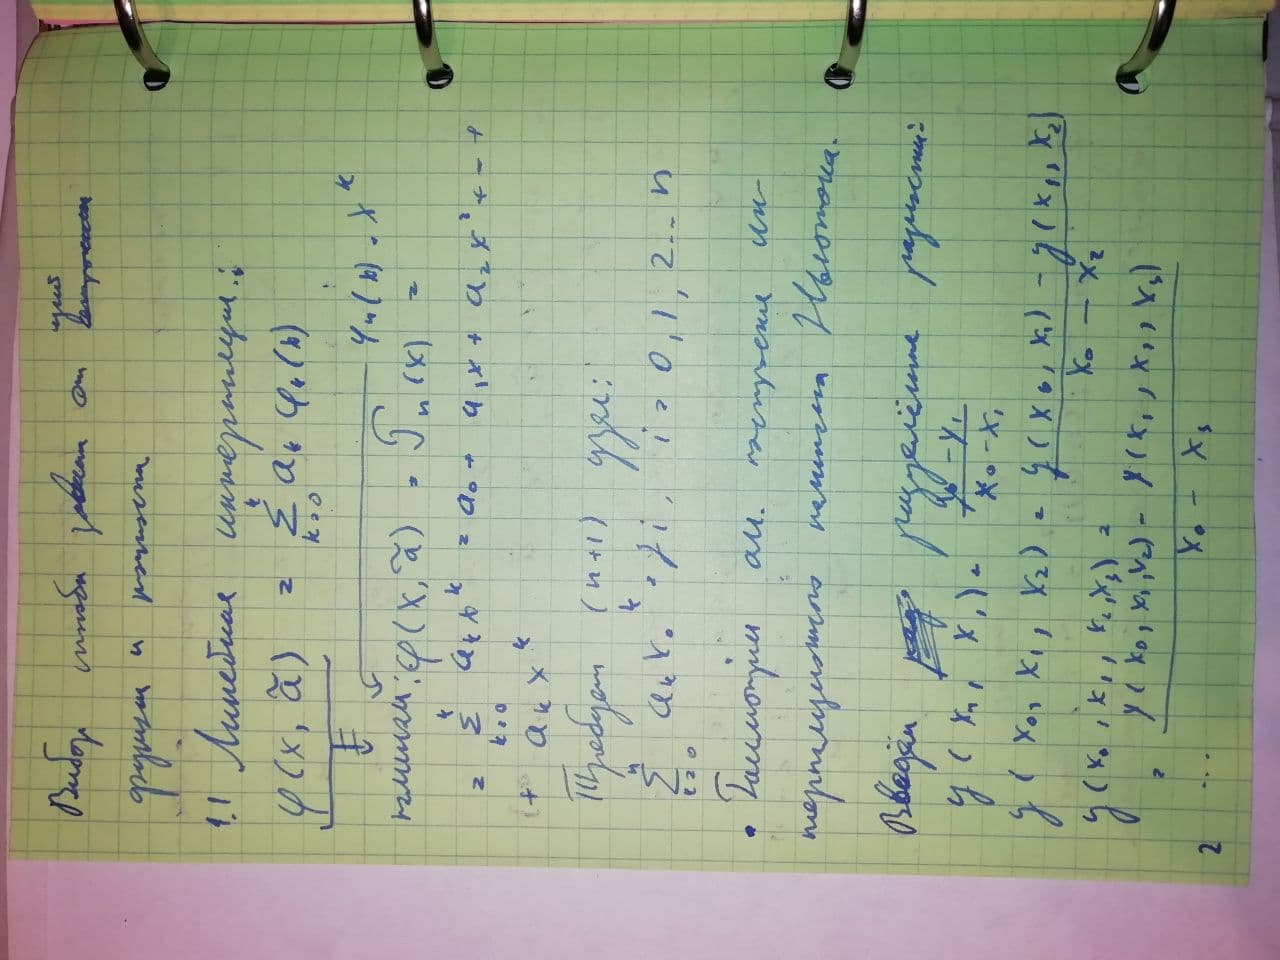 Выбор способа зависит от цели
функции и точности
1.1 Линейная интерполяция:
φ(x, ã) = Σ_{k=0}^{k} a_k φ_k(x)
φ_k(x) = x^k
полином: φ(x, ã) = P_n(x) =
= Σ_{k=0}^{k} a_k x^k = a_0 + a_1 x + a_2 x^2 + ... +
+ a_k x^k
Требует (n+1) узел:
Σ_{k=0}^{n} a_k x_0^k = y_i, i = 0, 1, 2... n
• Рассмотрим ал. построения ин-
терполяционного полинома Ньютона.
Введём разделённые разности:
y(x_0, x_1) = (y_0 - y_1)/(x_0 - x_1)
y(x_0, x_1, x_2) = (y(x_0, x_1) - y(x_1, x_2))/(x_0 - x_2)
y(x_0, x_1, x_2, x_3) =
= (y(x_0, x_1, x_2) - y(x_1, x_2, x_3))/(x_0 - x_3)
...
2